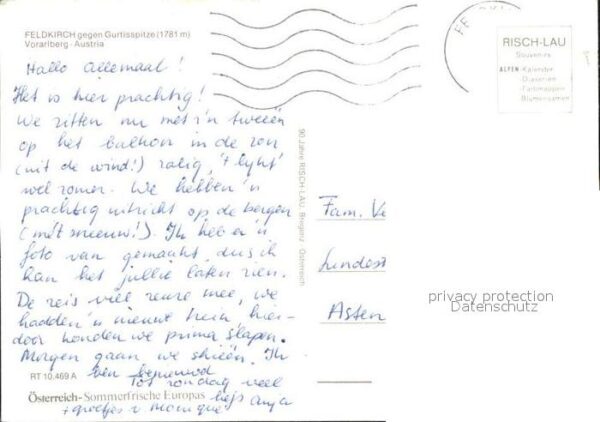 FELDKIRCH gegen Gurtisspitze (1781 m)
Vorarlberg - Austria
Hallo allemaal!
Het is hier prachtig!
We zitten nu met z'n tweeën
op het balkon in de zon
(uit de wind!) zalig, 't lijkt
wel zomer. We hebben 'n
prachtig uitzicht op de bergen
(mét sneeuw!). Ik heb er 'n
foto van gemaakt, dus ik
kan het jullie laten zien.
De reis viel reuze mee, we
hadden 'n nieuwe trein, hier-
door konden we prima slapen.
Morgen gaan we skieën. Ik
ben benieuwd
Tot zondag veel
liefs Anja
+ groetjes v. Monique
RT 10.469 A
Österreich - Sommerfrische Europas
90 Jahre RISCH-LAU, Bregenz - Österreich
FE
RISCH-LAU
Souvenirs
ALPEN-Kalender
-Diaserien
-Farbmappen
-Blumensamen
Fam. Ve
Lindest
Asten
privacy protection
Datenschutz